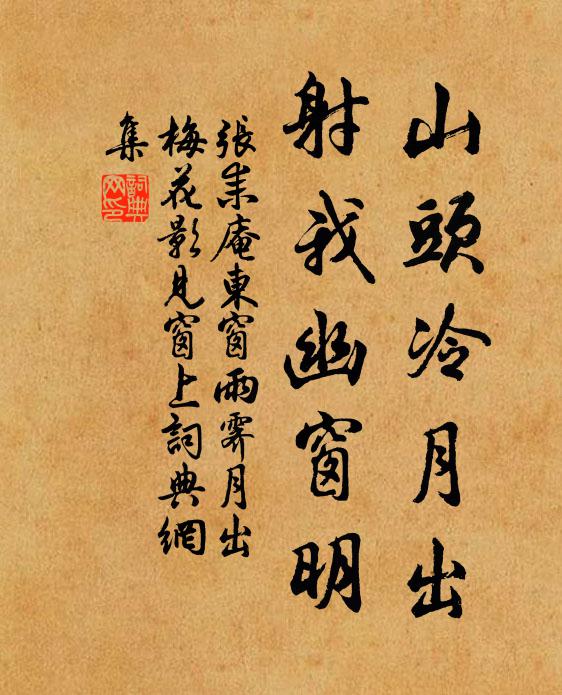 山頭冷月出
射我幽窗明
張耒庵東窗雨霽月出
梅花影見窗上詞典網
集
詞典
网印